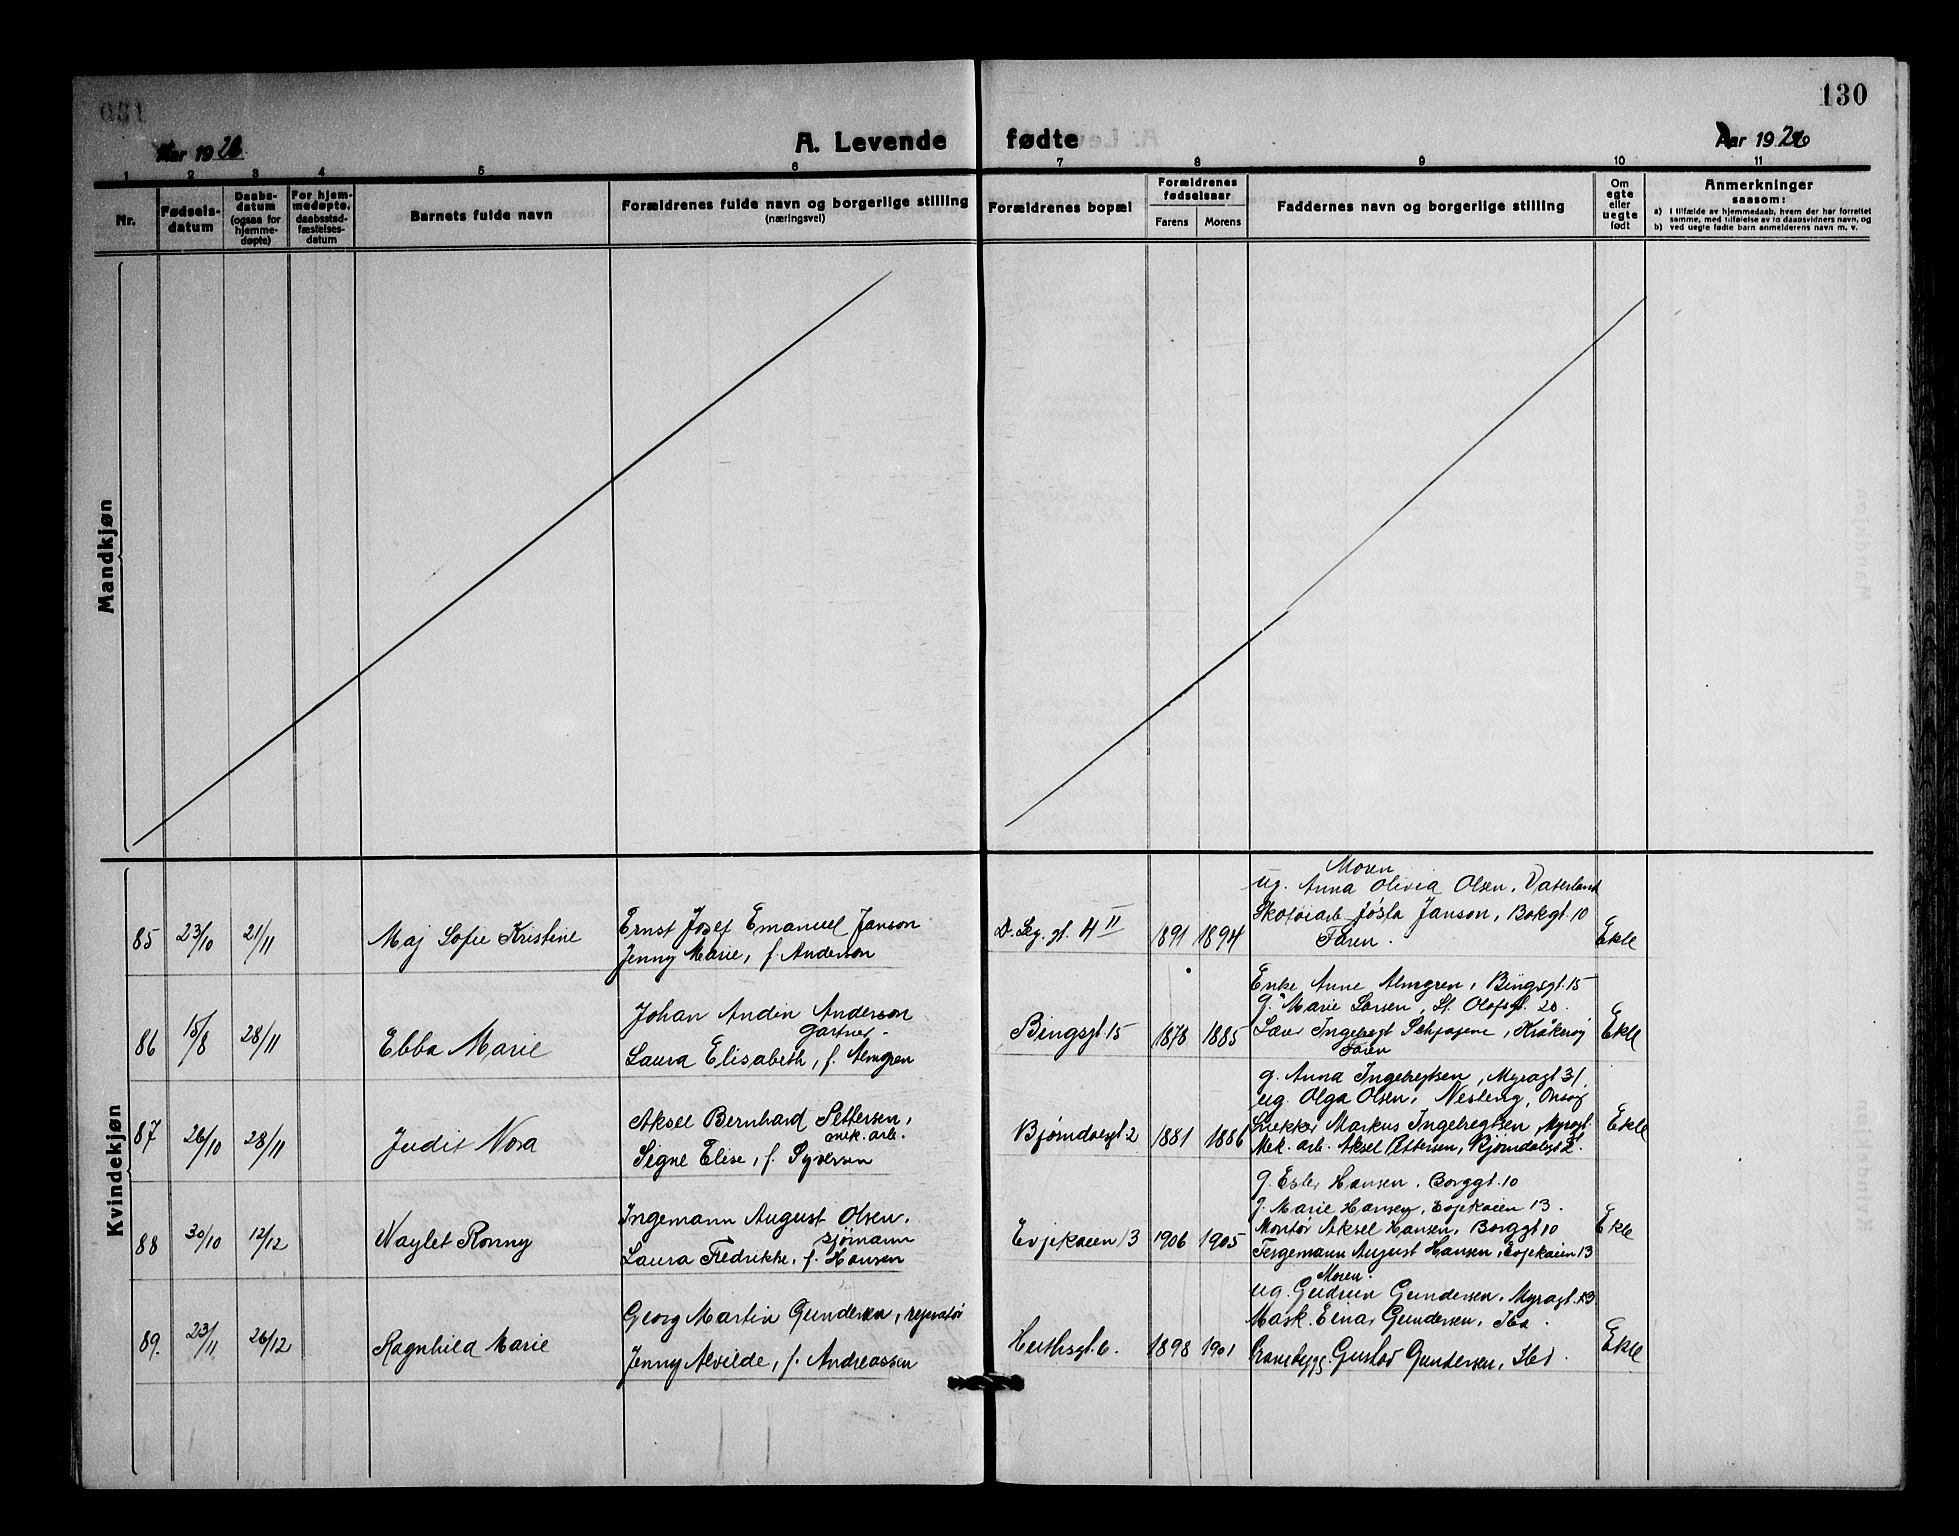 130
A. Levende fødte
Aar 1926
Aar 1926
1 2 3 4 5 6 7 8 9 10 11
Nr.
Fødsels-
datum
Daabs-
datum
(ogsaa for
hjemme-
døpte)
For hjem-
medøpte,
daabsstad-
fæstelses-
datum
Barnets fulde navn
Forældrenes fulde navn og borgerlige stilling
(næringsvei)
Forældrenes bopæl
Forældrenes
fødselsaar
Farens
Morens
Faddernes navn og borgerlige stilling
Om
egte
eller
uegte
født
Anmerkninger
saasom:
a) i tilfælde av hjemmedaab, hvem der har forrettet
samme, med tilføielse av to daabsvidners navn, og
b) ved uegte fødte barn anmelderens navn m. v.
Mandkjøn
Kvindekjøn
85 23/10 21/11 Maj Sofie Kristine
Ernst Josef Emanuel Janson
Jenny Marie, f. Anderson
1891 1894
Moren
ug. Anna Olivia Olsen, Vaterland
Skotøiarb Jøsta Janson, Bakgt 10
Faren.
Ekte
86 15/8 28/11 Ebba Marie
Johan Andin Anderson
gartner
Laura Elisabeth, f. Almgren
Bingsgt 15
1878 1885
Enke Anne Almgren, Bingsgt. 15
g. Marie Larsen, St. Olofsgt. 20
Ingebregt Kråkerøy
Faren
Ekte
87 26/10 28/11 Judit Nora
Aksel Bernhard Pettersen,
mek. arb.
Signe Elise, f. Syversen
Bjørndalsgt 2
1881 1886
g. Anna Ingebregtsen, Myragt 31.
ug. Olga Olsen, Onsøy
Markus Ingebregtsen, Myragt.
Mek. arb. Aksel Pettersen, Bjørndalsgt 2.
Ekte
88 30/10 12/12 Waylet Ronny
Ingemann August Olsen,
sjømann
Laura Fredrikke, f. Hansen
Evjekaien 13
1906 1905
g. Ester Hansen, Borggt. 10
g. Marie Hansen, Evjekaien 13.
Montør Aksel Hansen, Borggt 10
August Hansen, Evjekaien 13
Ekte
89. 23/11 26/12 Ragnhild Marie
Georg Martin Gundersen, reparatør
Jenny Alvilde, f. Andreassen
1898 1901
Moren.
ug. Gudrun Gundersen, Myragt. 13
Mask. Einar Gundersen, Ibd.
Gustav Gundersen, Ibd.
Ekte